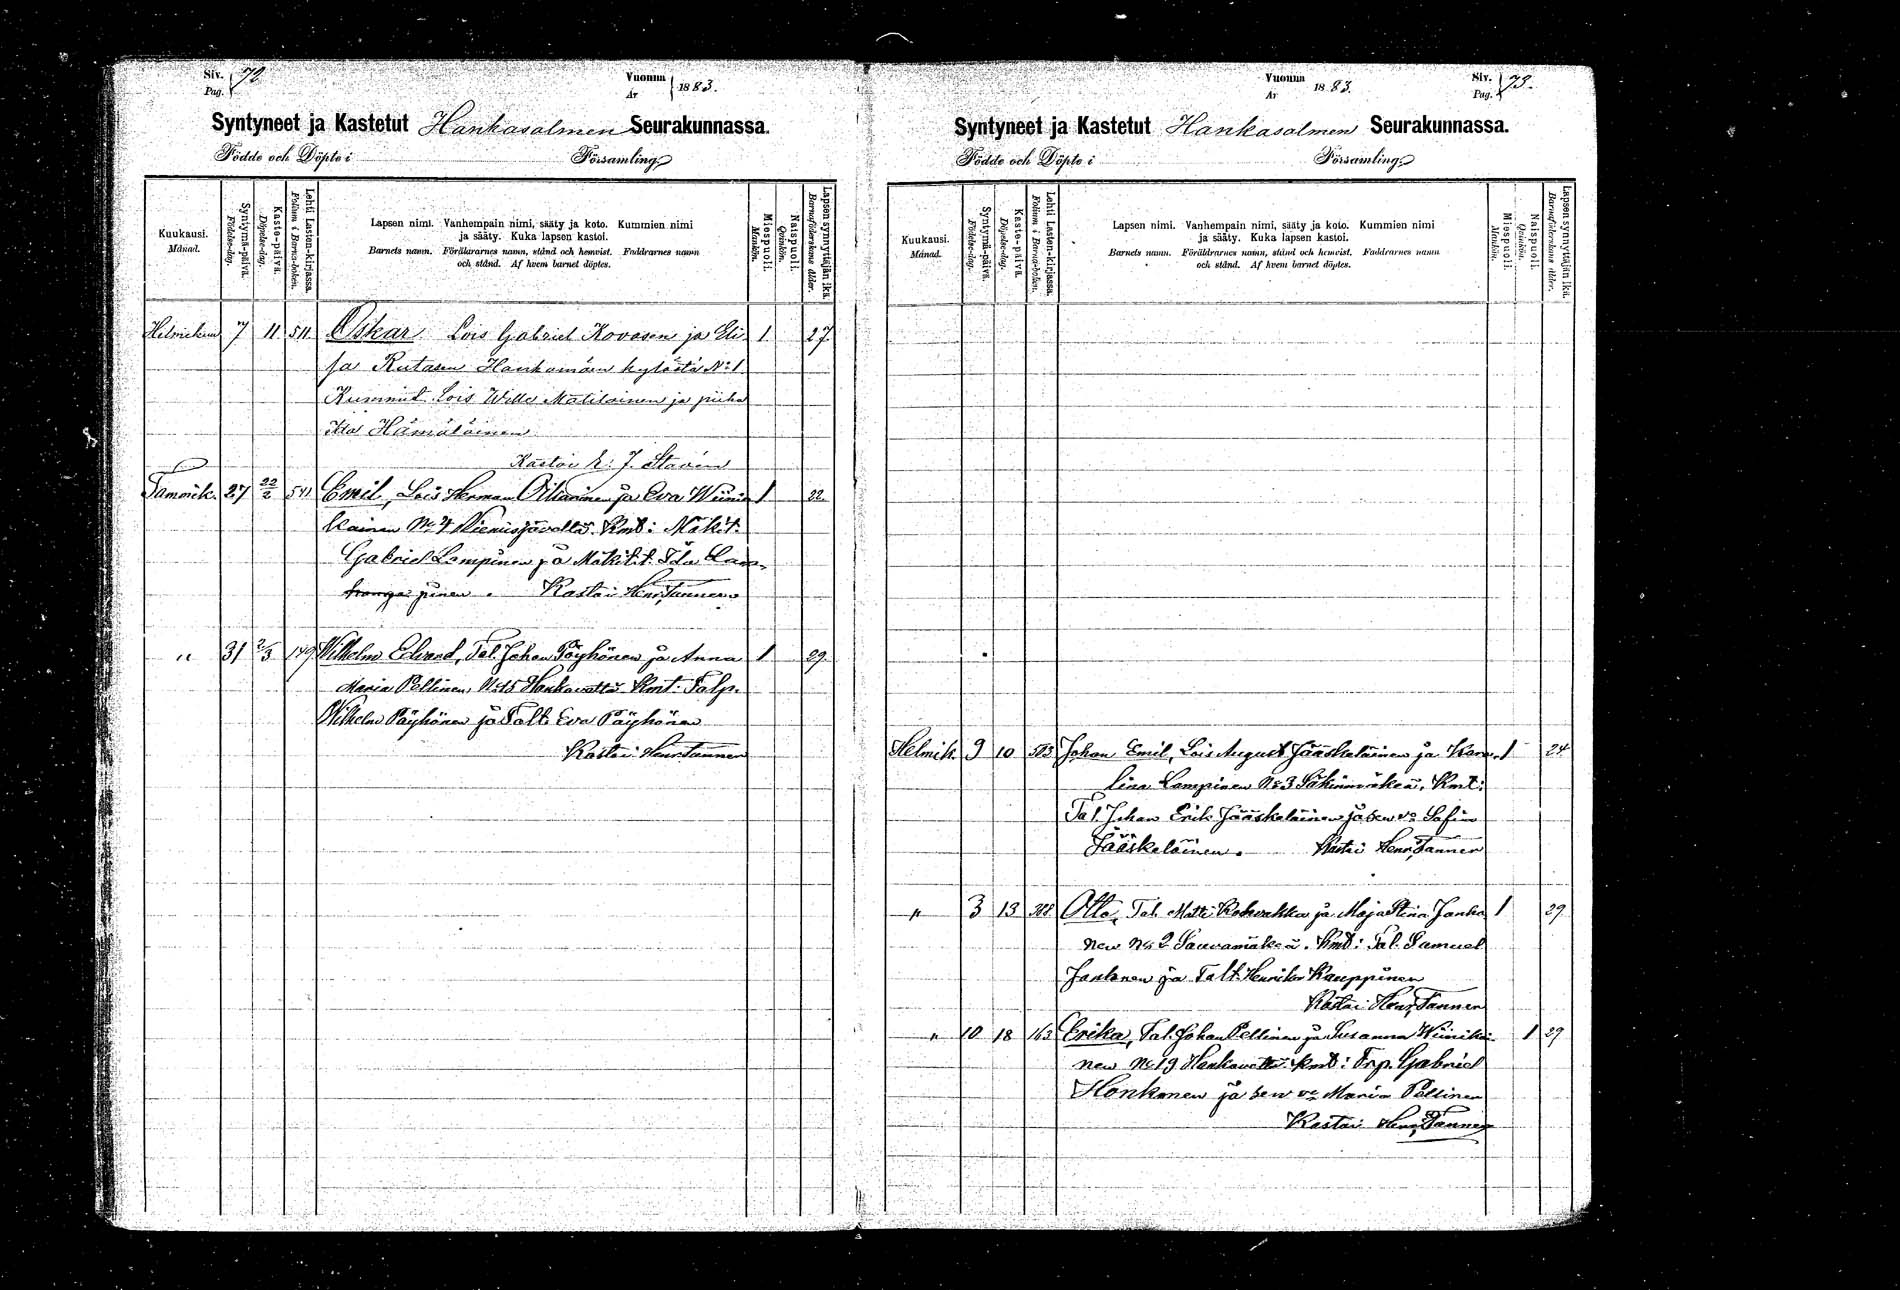 Siv. Pag. 72
Vuonna År 1883.
Syntyneet ja Kastetut Hankasalmen Seurakunnassa.
Födde och Döpte i Församling.
Kuukausi. Månad.
Syntymä-päivä. Födelse-dag.
Kaste-päivä. Döpelse-dag.
Lehti Lasten-kirjassa. Folium i Barna-boken.
Lapsen nimi. Vanhempain nimi, sääty ja koto. Kummien nimi
ja sääty. Kuka lapsen kastoi.
Barnets namn. Förälararnes namn, stånd och hemvist. Faddrarnes namn
och stånd. Af hvem barnet döptes.
Miespuoli. Mankön.
Naispuoli. Qvinkön.
Lapsen synnyttäjän ikä. Barnaföderskans ålder.
Helmikuu 7 11 511 Oskar. Lois Gabriel Kovasen ja Eli- 1 27
sa Rutasen Hankamäen kylästä No 1.
Kummit Lois Wille Matilainen ja piika
Ida Hämäläinen
Kastoi E. J. Stavén
Tammik. 27 22/2 541 Emil, Lois Herman ja Eva Wiini- 1 22
kainen No 4 Kmt: Mäkit.
Gabriel Lampinen ja Mäkitt. Ida Lam-
pinen. Kastoi Henr. Tanner
" 31 2/3 149 Wilhelm Edvard, Tal. Johan Päyhönen ja Anna 1 29
Maria Pellinen, No 15 Hankavetta. Kmt: Talp.
Wilhelm Päyhönen ja Talt. Eva Päyhönen
Kastoi Henr. Tanner
Siv. Pag. 73.
Vuonna År 1883.
Syntyneet ja Kastetut Hankasalmen Seurakunnassa.
Födde och Döpte i Församling.
Kuukausi. Månad.
Syntymä-päivä. Födelse-dag.
Kaste-päivä. Döpelse-dag.
Lehti Lasten-kirjassa. Folium i Barna-boken.
Lapsen nimi. Vanhempain nimi, sääty ja koto. Kummien nimi
ja sääty. Kuka lapsen kastoi.
Barnets namn. Föräldrarnes namn, stånd och hemvist. Faddrarnes namn
och stånd. Af hvem barnet döptes.
Miespuoli. Mankön.
Naispuoli. Qvinkön.
Lapsen synnyttäjän ikä. Barnaföderskans ålder.
Helmik. 9 10 Johan Emil, Lois August Jääskeläinen ja Karo- 1 24
lina Lampinen No 3 Säkinmäkeä, Kmt:
Tal. Johan Erik Jääskeläinen ja sen vo Sofia
Jääskeläinen. Kastoi Henr. Tanner
" 3 13 Otto, Tal. Matti Rahvakka ja Maja Stina Janho- 1 29
nen No 2 Sauvamäkeä. Kmt: Tal. Samuel
Janhonen ja Talt. Henrika Kauppinen
Kastoi Henr. Tanner
" 10 18 163 Erika, Tal. Johan Pellinen ja Susanna Wiinikai- 1 29
nen No 19 Hankavetta. Kmt: Trp. Gabriel
Honkonen ja sen vo Maria Pellinen
Kastoi Henr. Tanner